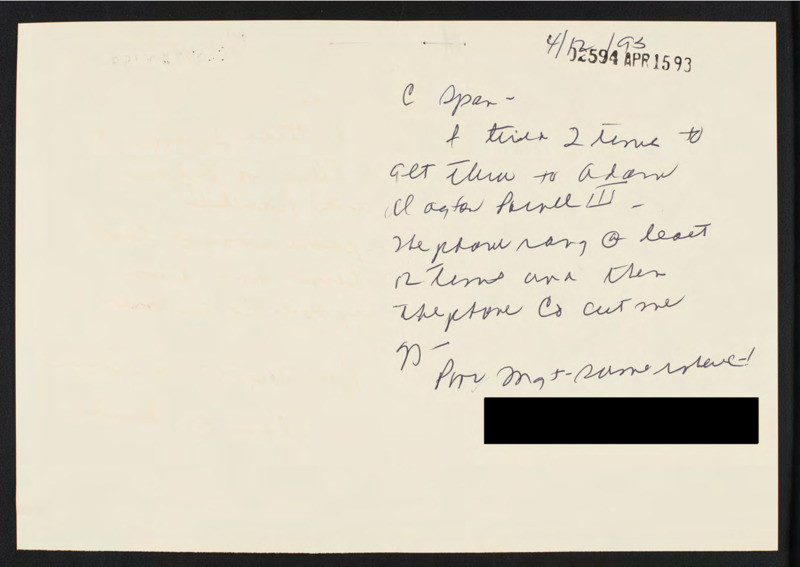 4/12/93
02594 APR 15 93
C Span -
I tried 2 times to
get thru to Adam
Clayton Powell III -
The phone rang @ least
12 times and then
the phone Co cut me
off -
Poor Mgt - somewhere!